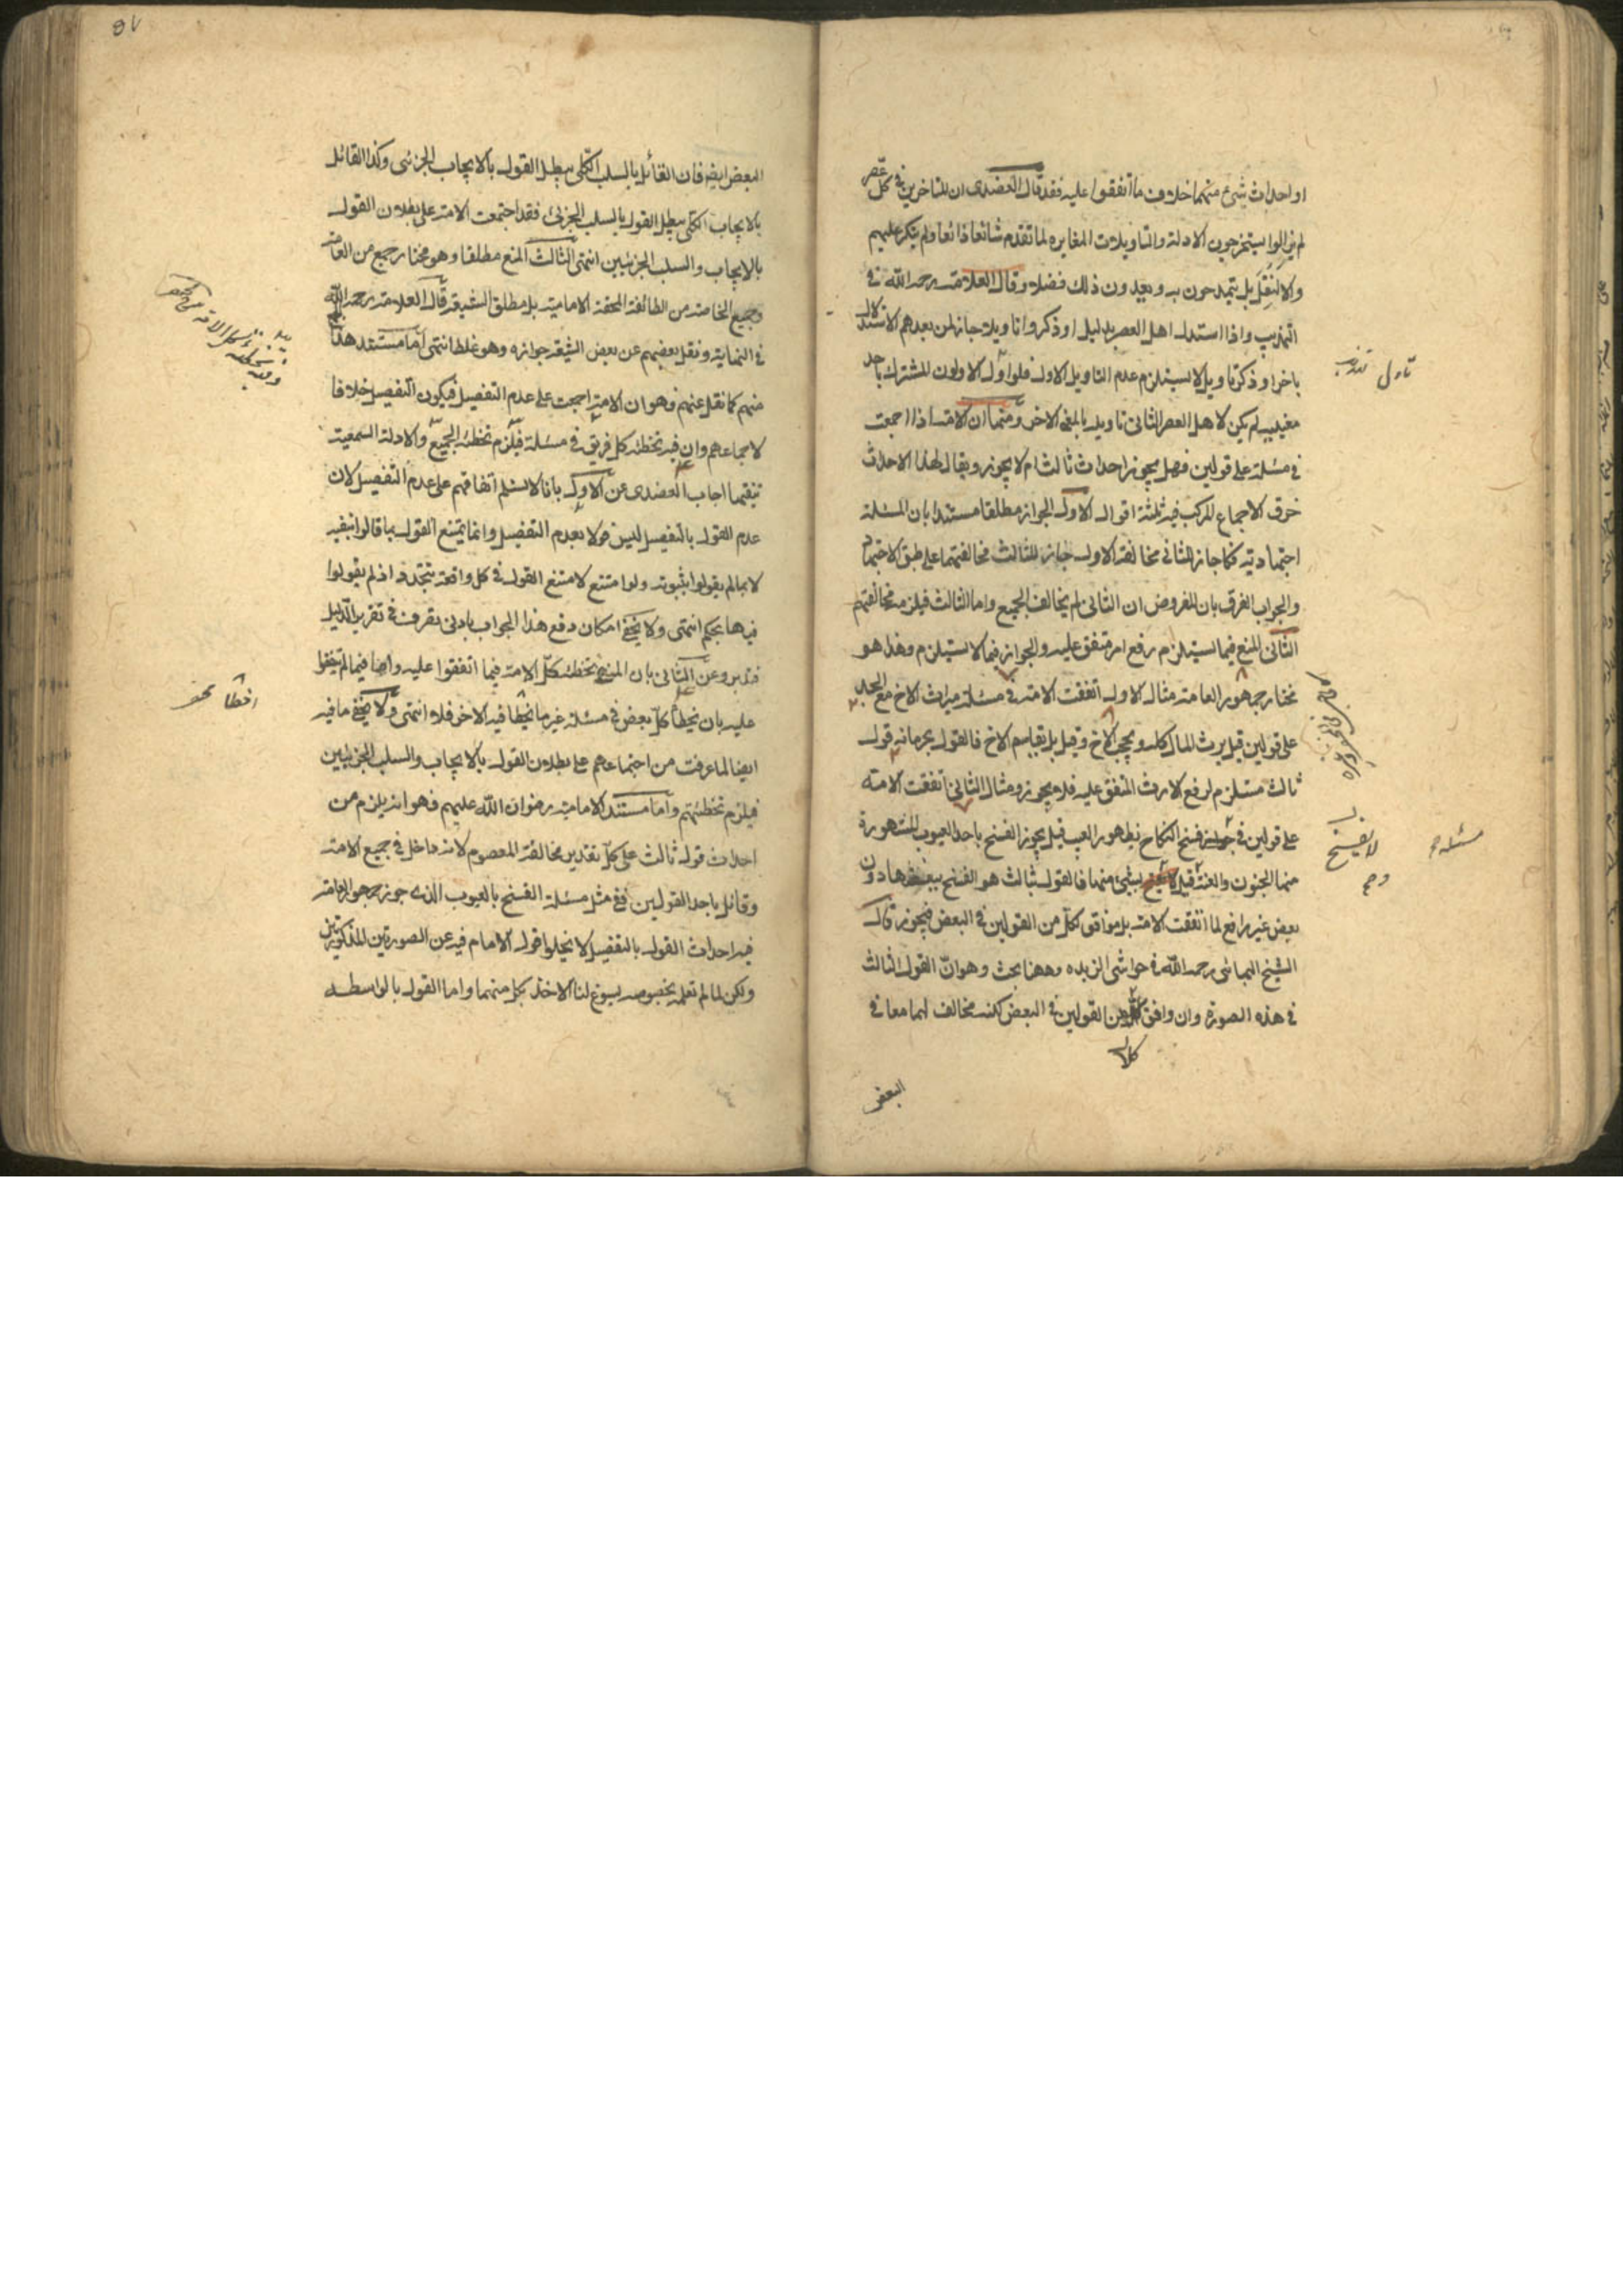 او احداث شئ منهما خلاف ما اتفقوا عليه فقد قال العضدى ان المتاخرين فى كل عصر
لم يزالوا يستخرجون الادلة والتاويلات المغايره لما تقدم شائعا ذائعا ولم ينكر عليهم
والا لنقل بل يتمدحون به ويعدون ذلك فضلا وقال العلامة رحمه الله فى
التهذيب واذا استدل اهل العصر بدليل او ذكروا تاويلا جاز لمن بعدهم الاستدلال
باخر او ذكر تاويل لا يستلزم عدم التاويل الاول فلو اول الاولون المشترك باحد
معنييه لم يكن لاهل العصر الثانى تاويله بالمعنى الاخر ومنها ان الامة اذا اجمعت
فى مسئلة على قولين فهل يجوز احداث ثالث ام لا يجوز ويقال لهذا الاحداث
خرق الاجماع المركب فيه ثلثة اقوال الاول الجواز مطلقا مستندا بان المسئلة
اجتهادية فكما جاز للثانى مخالفة الاول جاز للثالث مخالفتهما على طبق الاجتهاد
والجواب الفرق بان المفروض ان الثانى لم يخالف الجميع واما الثالث فيلزمه مخالفتهم
الثانى المنع فيما يستلزم رفع امر متفق عليه والجواز فيما لا يستلزم وهذا هو
مختار جمهور العامة مثال الاول اتفقت الامة فى مسئلة ميراث الاخ مع الجد
على قولين قيل يرث المال كله ويحجب الاخ وقيل بل يقاسم الاخ فالقول بحرمانه قول
ثالث مستلزم لرفع الارث المتفق عليه فلا يجوز ومثال الثانى اتفقت الامة
على قولين فى جواز فسخ النكاح بظهور العيب قيل يجوز الفسخ باحد العيوب المشهورة
منها الجنون والعنة وقيل لا يفسخ بشئ منها فالقول ثالث هو الفسخ ببعضها دون
بعض غير رافع لما اتفقت الامة بل موافق لكل من القولين فى البعض فيجوز قال
الشيخ البهائى رحمه الله فى حواشى الزبده وههنا بحث وهو ان القول الثالث
فى هذه الصورة وان وافق كلا من القولين فى البعض لكنه مخالف لهما معا فى
كلا
البعض
مسئلة
لا يفسخ
البعض ايضا فان القائل بالسلب الكلى يبطل القول بالايجاب الجزئى وكذا القائل
بالايجاب الكلى يبطل القول بالسلب الجزئى فقد اجتمعت الامة على بطلان القول
بالايجاب والسلب الجزئيين انتهى الثالث المنع مطلقا وهو مختار جمع من العامة
وجميع الخاصة من الطائفة المحقة الامامية بل مطلق الشيعة قال العلامة رحمه الله
فى النهاية ونقل بعضهم عن بعض الشيعة جوازه وهو غلط انتهى اما مستند هذا
منهم كما نقل عنهم وهو ان الامة اجمعت على عدم التفصيل فيكون التفصيل خلافا
لاجماعهم وان فيه تخطئة كل فريق فى مسئلة فيلزم تخطئة الجميع والادلة السمعية
تنفيها اجاب العضدى عن الاول بانا لا نسلم اتفاقهم على عدم التفصيل لان
عدم القول بالتفصيل ليس قولا بعدم التفصيل وانما يمتنع القول بما قالوا بنفيه
لا بما لم يقولوا بثبوته ولو امتنع لامتنع القول فى كل واقعة تتجدد اذ لم يقولوا
فيها بحكم انتهى ولا يخفى امكان دفع هذا الجواب بادنى تصرف فى تقرير الدليل
فتدبر وعن الثانى بان المنفى تخطئة كل الامة فيما اتفقوا عليه واما فيما لم يتفقوا
عليه بان يخطأ كل بعض فى مسئلة غير ما يخطأ فيه الاخر فلا انتهى ولا يخفى ما فيه
ايضا لما عرفت من اجتماعهم على بطلان القول بالايجاب والسلب الجزئيين
فيلزم تخطئتهم واما مستند الامامية رضوان الله عليهم فهو انه يلزم من
احداث قول ثالث على كل تقدير مخالفة المعصوم لانه داخل فى جميع الامة
وقائل باحد القولين ففى مثل مسئلة الفسخ بالعيوب الذى جوز جمهور العامة
فيه احداث القول بالتفصيل لا يخلوا قول الامام فيه عن الصورتين المذكورتين
ولكن لما لم نعلمه بخصوصه يسوغ لنا الاخذ بكل منهما واما القول بالواسطه